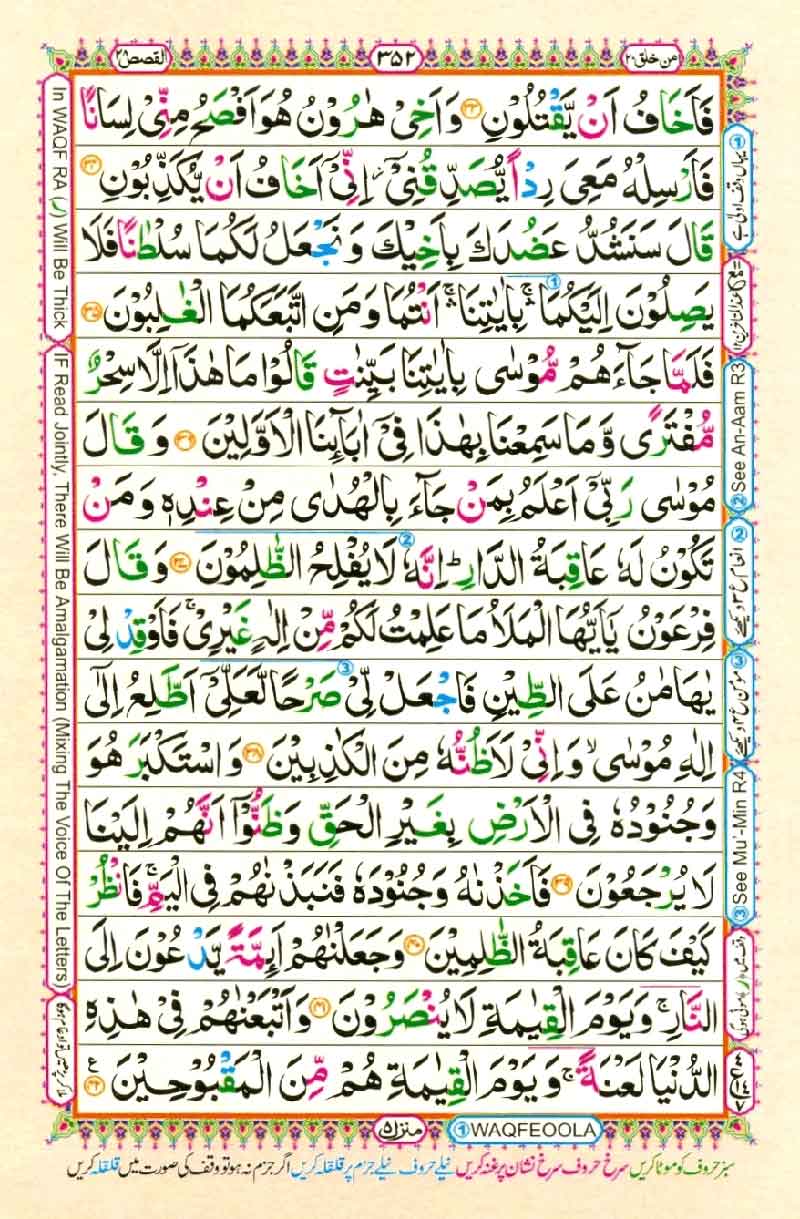 من خلق ٢٠
٣٥٢
القصص ٢٨
فَاَخَافُ اَنْ يَّقْتُلُوْنِ ﴿۳۳﴾ وَاَخِيْ هٰرُوْنُ هُوَاَفْصَحُ مِنِّيْ لِسَانًا
فَاَرْسِلْهُ مَعِيَ رِدْاً يُّصَدِّقُنِيْٓ ز اِنِّيْٓ اَخَافُ اَنْ يُّكَذِّبُوْنِ ﴿۳۴﴾
قَالَ سَنَشُدُّ عَضُدَكَ بِاَخِيْكَ وَ نَجْعَلُ لَكُمَا سُلْطٰنًا فَلَا
يَصِلُوْنَ اِلَيْكُمَا ۚۛ بِاٰيٰتِنَا ۚۛ اَنْتُمَا وَمَنِ اتَّبَعَكُمَا الْغٰلِبُوْنَ ﴿۳۵﴾
فَلَمَّا جَآءَهُمْ مُّوْسٰى بِاٰيٰتِنَا بَيِّنٰتٍ قَالُوْا مَا هٰذَآ اِلَّا سِحْرٌ
مُّفْتَرًى وَّمَا سَمِعْنَا بِهٰذَا فِيْٓ اٰبَآئِنَا الْاَوَّلِيْنَ ﴿۳۶﴾ وَقَالَ
مُوْسٰى رَبِّيْٓ اَعْلَمُ بِمَنْ جَآءَ بِالْهُدٰى مِنْ عِنْدِهٖ وَمَنْ
تَكُوْنُ لَهٗ عَاقِبَةُ الدَّارِ ؕ اِنَّهٗ لَا يُفْلِحُ الظّٰلِمُوْنَ ﴿۳۷﴾ وَقَالَ
فِرْعَوْنُ يٰٓاَيُّهَا الْمَلَاُ مَا عَلِمْتُ لَكُمْ مِّنْ اِلٰهٍ غَيْرِيْ ۚ فَاَوْقِدْ لِيْ
يٰهَامٰنُ عَلَى الطِّيْنِ فَاجْعَلْ لِّيْ صَرْحًا لَّعَلِّيْٓ اَطَّلِعُ اِلٰٓى
اِلٰهِ مُوْسٰى ۙ وَاِنِّيْ لَاَظُنُّهٗ مِنَ الْكٰذِبِيْنَ ﴿۳۸﴾ وَاسْتَكْبَرَ هُوَ
وَجُنُوْدُهٗ فِي الْاَرْضِ بِغَيْرِ الْحَقِّ وَظَنُّوْٓا اَنَّهُمْ اِلَيْنَا
لَا يُرْجَعُوْنَ ﴿۳۹﴾ فَاَخَذْنٰهُ وَجُنُوْدَهٗ فَنَبَذْنٰهُمْ فِي الْيَمِّ ۚ فَانْظُرْ
كَيْفَ كَانَ عَاقِبَةُ الظّٰلِمِيْنَ ﴿۴۰﴾ وَجَعَلْنٰهُمْ اَئِمَّةً يَّدْعُوْنَ اِلَى
النَّارِ ۚ وَيَوْمَ الْقِيٰمَةِ لَا يُنْصَرُوْنَ ﴿۴۱﴾ وَاَتْبَعْنٰهُمْ فِيْ هٰذِهِ
الدُّنْيَا لَعْنَةً ۚ وَيَوْمَ الْقِيٰمَةِ هُمْ مِّنَ الْمَقْبُوْحِيْنَ ﴿۴۲﴾ ع
① یہاں وقف اولیٰ ہے
② See An-Aam R3
③ See Mu'-Min R4
In WAQF RA (ر) Will Be Thick
IF Read Jointly, There Will Be Amalgamation (Mixing The Voice Of The Letters)
منزل ۵
① WAQFEOOLA
سبز حروف کو موٹا کریں سرخ حروف سرخ نشان پر غنہ کریں نیلے حروف نیلے جزم پر قلقلہ کریں اگر جزم نہ ہو تو وقف کی صورت میں قلقلہ کریں